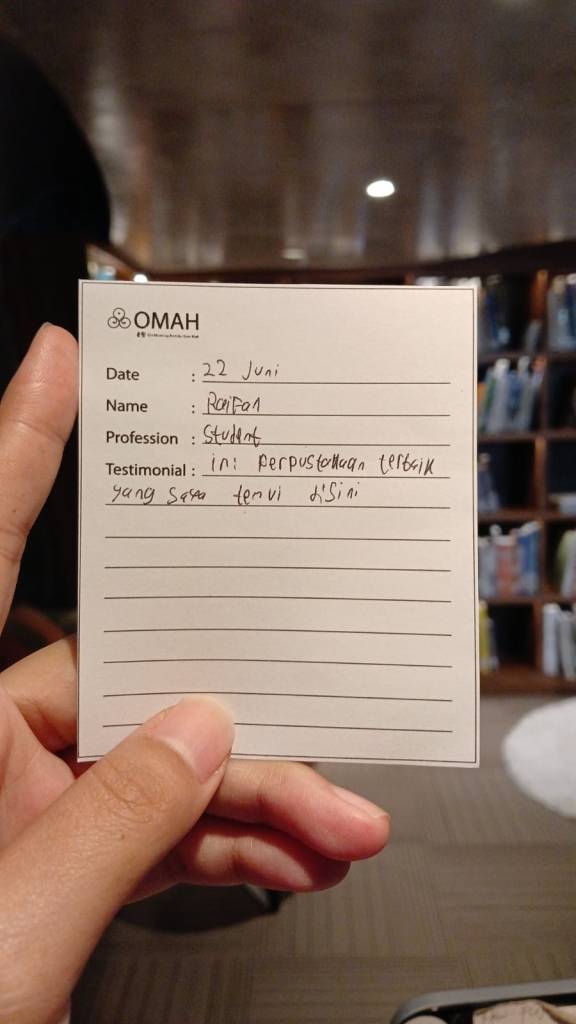 OMAH
Date : 22 Juni
Name : Raifan
Profession : Student
Testimonial : ini perpustakaan terbaik
yang saya temui disini